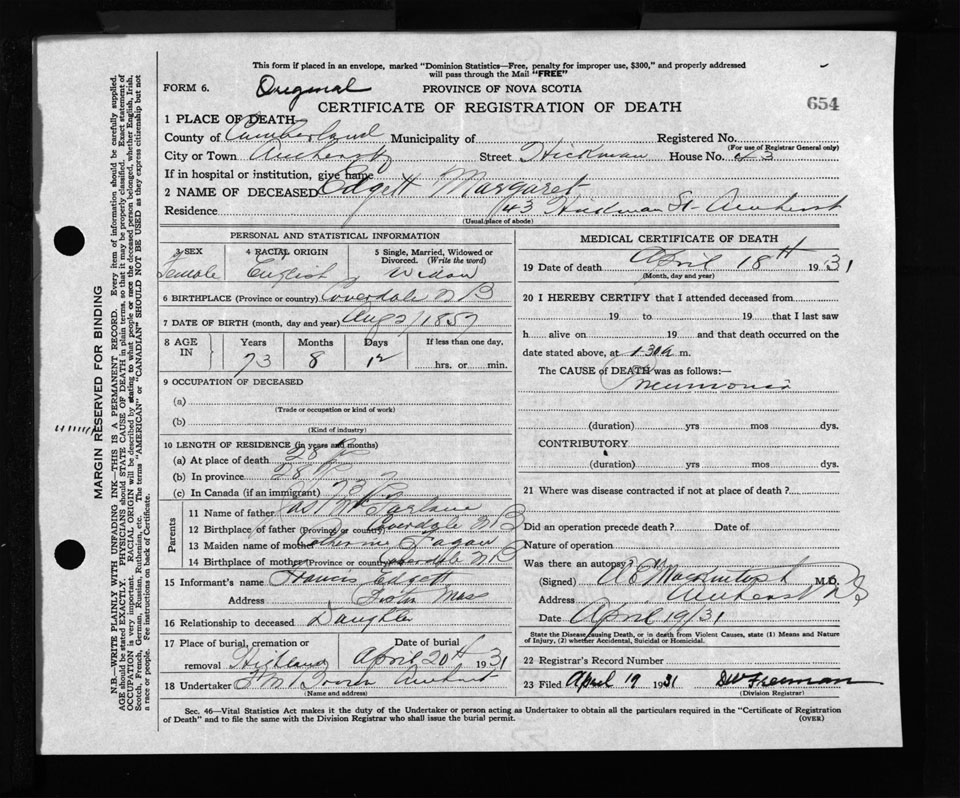 This form if placed in an envelope, marked "Dominion Statistics—Free, penalty for improper use, $300," and properly addressed
will pass through the Mail "FREE"
FORM 6. Original PROVINCE OF NOVA SCOTIA
CERTIFICATE OF REGISTRATION OF DEATH 654
1 PLACE OF DEATH
County of Cumberland Municipality of Registered No.
(For use of Registrar General only)
City or Town Amherst Street Hickman House No. 43
If in hospital or institution, give name
2 NAME OF DECEASED Edgett Margaret
Residence 43 Hickman St Amherst
(Usual place of abode)
PERSONAL AND STATISTICAL INFORMATION
3 SEX 4 RACIAL ORIGIN 5 Single, Married, Widowed or
Divorced. (Write the word)
Female English Widow
6 BIRTHPLACE (Province or country) Coverdale N B
7 DATE OF BIRTH (month, day and year) Aug 2/1857
8 AGE IN Years Months Days If less than one day,
73 8 12 hrs. or min.
9 OCCUPATION OF DECEASED
(a)
(Trade or occupation or kind of work)
(b)
(Kind of industry)
10 LENGTH OF RESIDENCE (in years and months)
(a) At place of death 28
(b) In province 28
(c) In Canada (if an immigrant) 73
Parents
11 Name of father Jas McFarlane
12 Birthplace of father (Province or country) Coverdale N B
13 Maiden name of mother Catherine Fagan
14 Birthplace of mother (Province or country) Coverdale N B
15 Informant's name Francis Edgett
Address Boston Mass
16 Relationship to deceased Daughter
17 Place of burial, cremation or Date of burial
removal Highland April 20th 1931
18 Undertaker Amherst
(Name and address)
MEDICAL CERTIFICATE OF DEATH
19 Date of death April 18th 1931
(Month, day and year)
20 I HEREBY CERTIFY that I attended deceased from
19 to 19 that I last saw
h alive on 19 and that death occurred on the
date stated above, at 1.30 a m.
The CAUSE of DEATH was as follows:—
Pneumonia
(duration) yrs mos dys.
CONTRIBUTORY
(duration) yrs mos dys.
21 Where was disease contracted if not at place of death?
Did an operation precede death? Date of
Nature of operation
Was there an autopsy?
(Signed) A E Mackintosh M.D.
Address Amherst N S
Date April 19/31
State the Disease causing Death, or in death from Violent Causes, state (1) Means and Nature
of Injury, (2) whether Accidental, Suicidal or Homicidal.
22 Registrar's Record Number
23 Filed April 19 1931 DW Freeman
(Division Registrar)
Sec. 46—Vital Statistics Act makes it the duty of the Undertaker or person acting as Undertaker to obtain all the particulars required in the "Certificate of Registration
of Death" and to file the same with the Division Registrar who shall issue the burial permit.
(OVER)
MARGIN RESERVED FOR BINDING
N.B.—WRITE PLAINLY WITH UNFADING INK—THIS IS A PERMANENT RECORD. Every item of information should be carefully supplied.
AGE should be stated EXACTLY. PHYSICIANS should STATE CAUSE OF DEATH in plain terms, so that it may be properly classified. Exact statement of
OCCUPATION is very important. RACIAL ORIGIN will be described by stating to what people or race the deceased person belonged, whether English, Irish,
Scotch, French, German, Russian, Ruthenian, etc. The terms "AMERICAN" or "CANADIAN" SHOULD NOT BE USED as they express citizenship but not
a race or people. See instructions on back of Certificate.